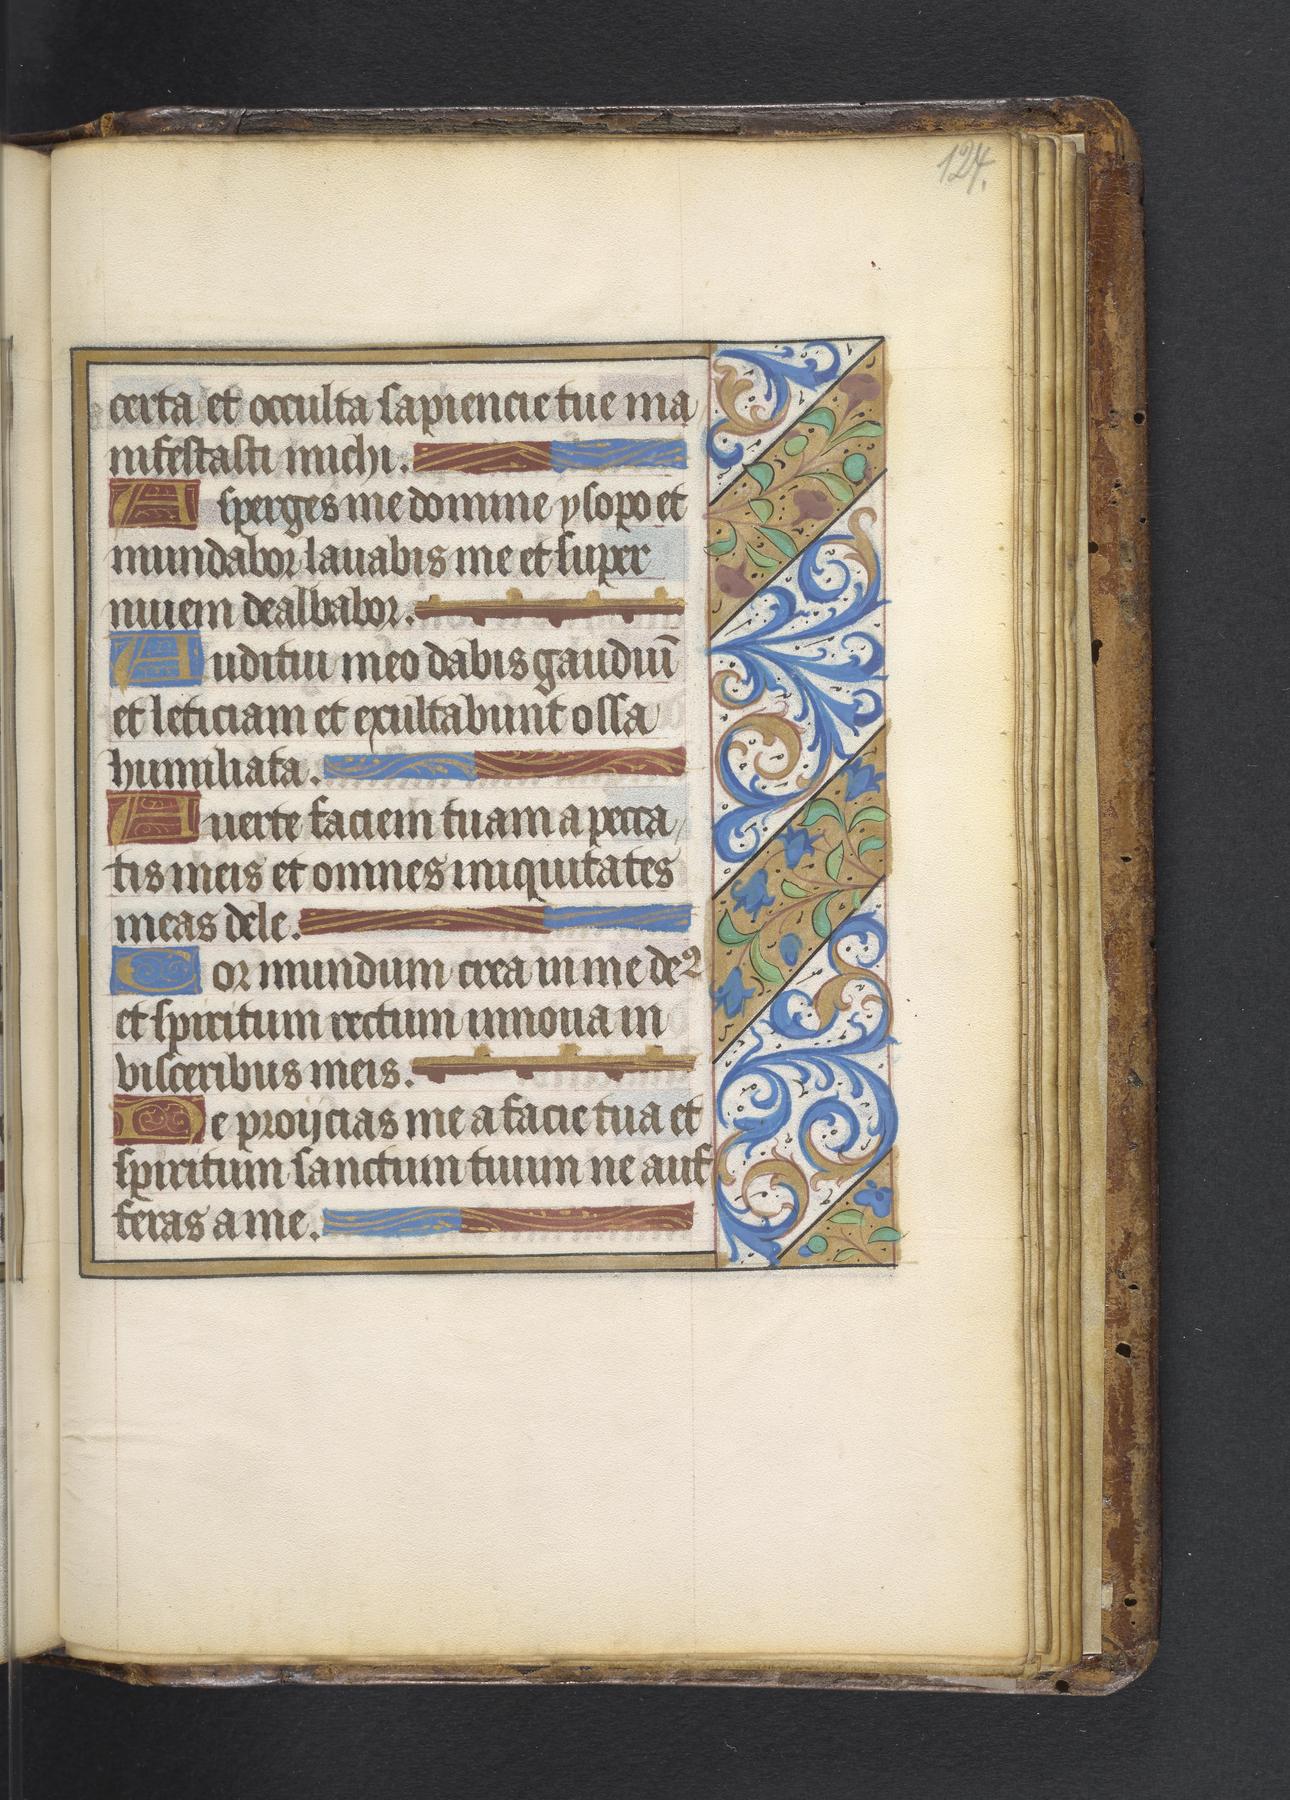 124.
certa et occulta sapiencie tue ma
nifestasti michi.
Asperges me domine ysopo et
mundabor lauabis me et super
niuem dealbabor.
Auditui meo dabis gaudiū
et leticiam et exultabunt ossa
humiliata.
Auerte faciem tuam a pecca
tis meis et omnes iniquitates
meas dele.
Cor mundum crea in me de
et spiritum rectum innoua in
visceribus meis.
Ne proijcias me a facie tua et
spiritum sanctum tuum ne auf
feras a me.